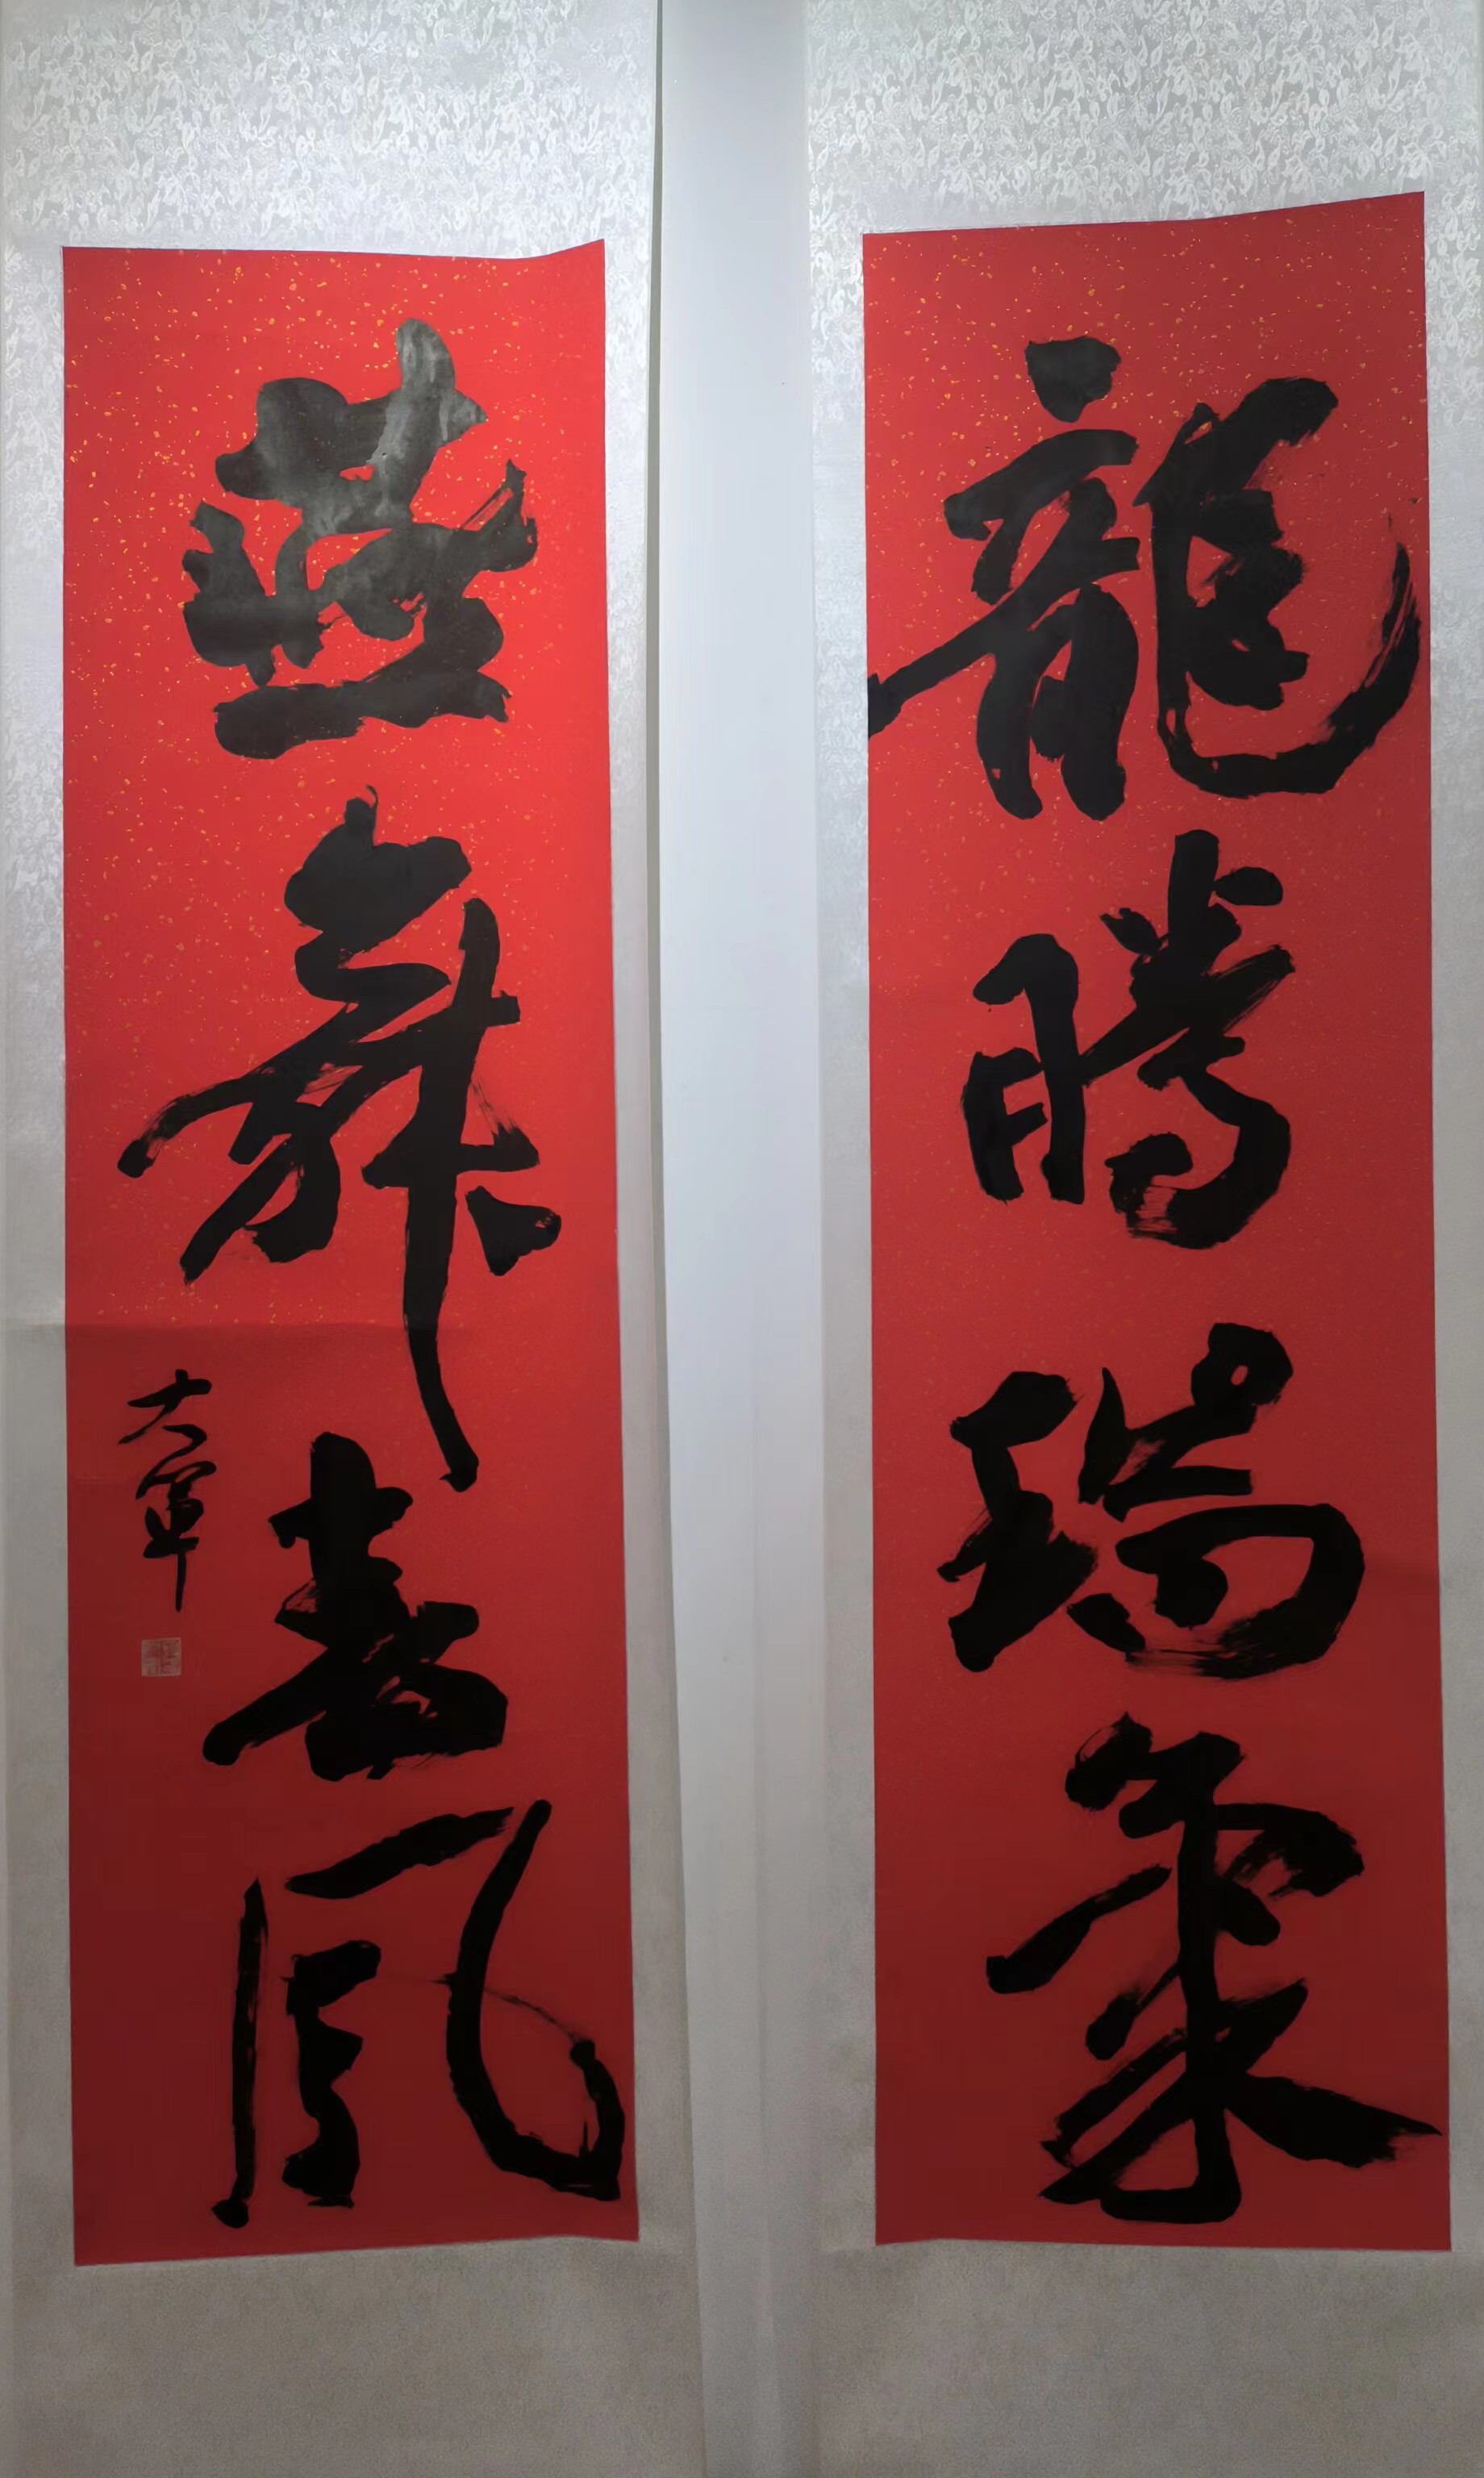 龍騰瑞氣
燕舞春風
大軍